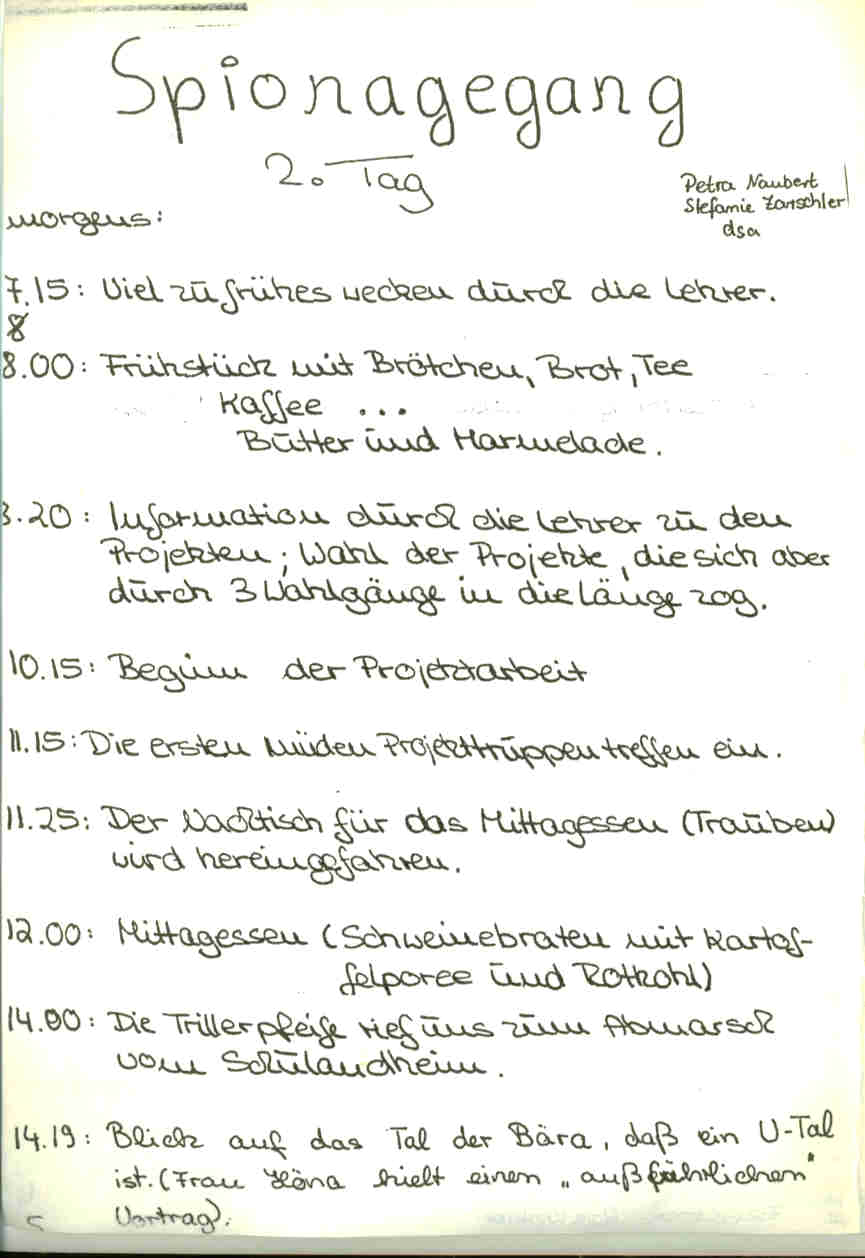 Spionagegang
2. Tag
Petra Naubert
Stefanie
dsa
morgens:
7.15: Viel zu frühes wecken durch die Lehrer.
8
8.00: Frühstück mit Brötchen, Brot, Tee
Kaffee ...
Butter und Marmelade.
8.20: Information durch die Lehrer zu den
Projekten; Wahl der Projekte, die sich aber
durch 3 Wahlgänge in die Länge zog.
10.15: Beginn der Projektarbeit
11.15: Die ersten müden Projekttruppen treffen ein.
11.25: Der Nachtisch für das Mittagessen (Trauben)
wird hereingefahren.
12.00: Mittagessen (Schweinebraten mit Kartof-
felporee und Rotkohl)
14.00: Die Trillerpfeife rief uns zum Abmarsch
vom Schulandheim.
14.19: Blick auf das Tal der Bära, daß ein U-Tal
ist. (Frau hielt einen „außführlichen"
Vortrag).